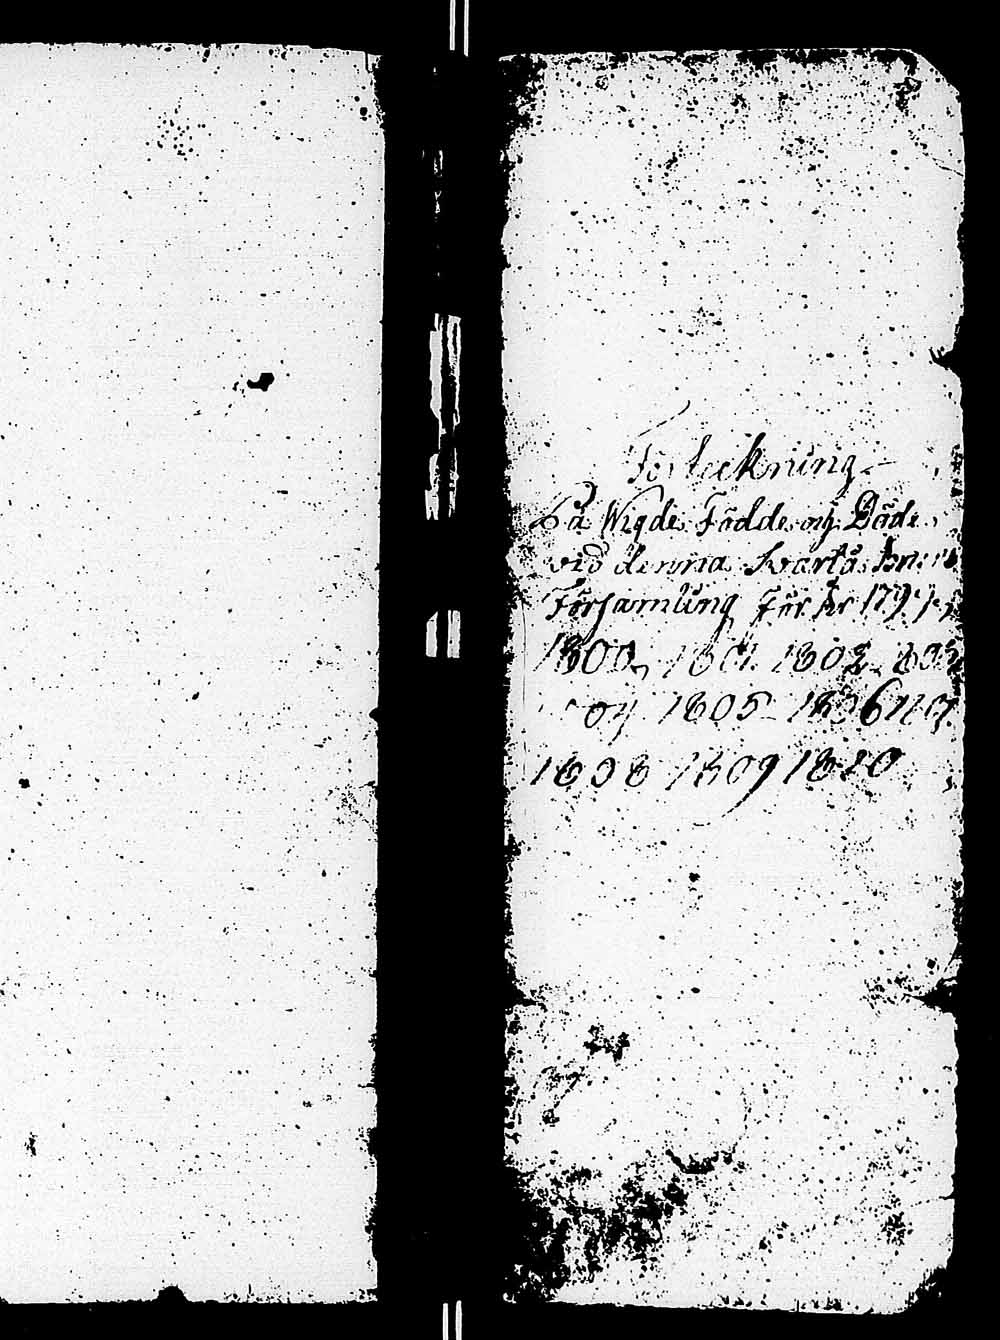 Förteckning
På Wigde Födde och Döde
vid denna Svartå
Församling För År 179
1800, 1801 1802
och 1805 1806
1808 1809 1810